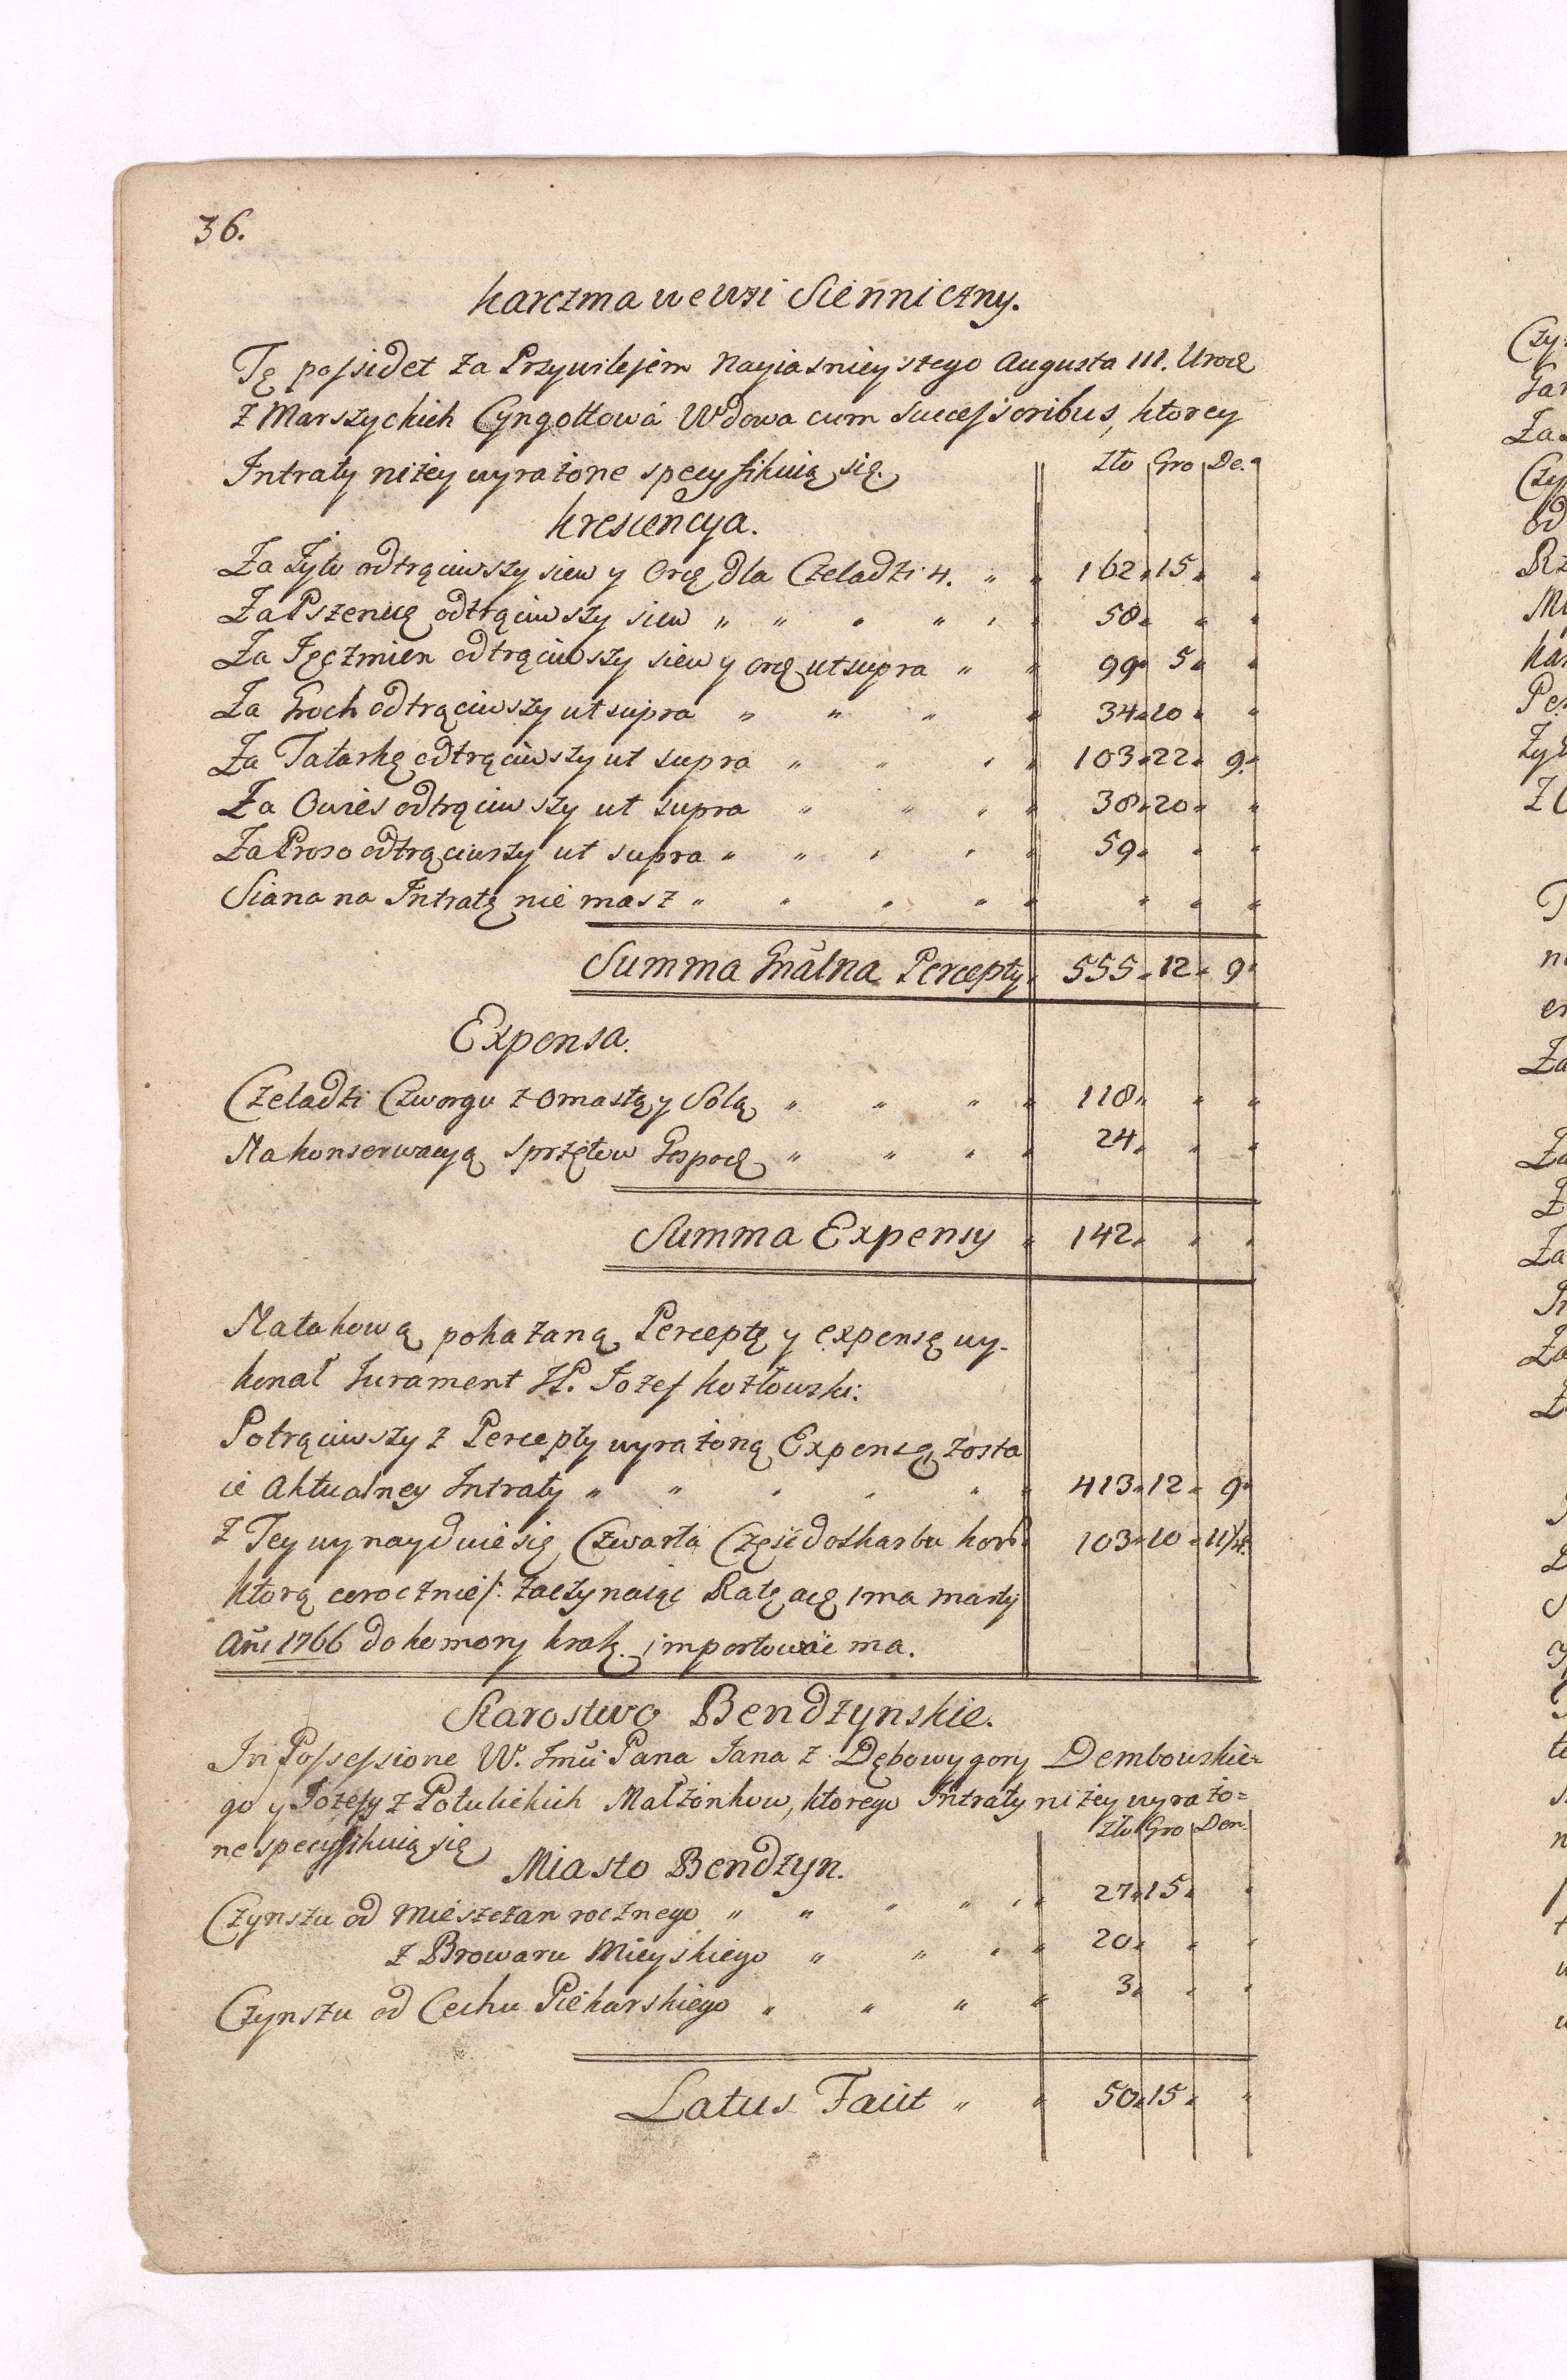 36.
Karczma we Wsi Sienniczny.
Tę possidet za Przywilejem Nayiasnieyszego Augusta III. Urodz
z Marszyckich Cyngottowa Wdowa cum Successoribus, ktorey
Intraty niżey wyrażone specyfikuią się. Zło Gro De.
Krescencya.
Za Żyto odtrąciwszy siew y Ord dla Czeladzi 4. " " 162 " 15 " "
Za Pszenicę odtrąciwszy siew " " " " " " 58 " " "
Za Jęczmien odtrąciwszy siew y ord ut supra " " 99 " 5 " "
Za Groch odtrąciwszy ut supra " " " " 34 " 10 " "
Za Tatarkę odtrąciwszy ut supra " " " " 103 " 22 " 9 "
Za Owies odtrąciwszy ut supra " " " " 38 " 20 " "
Za Proso odtrąciwszy ut supra " " " " " 59 " " "
Siana na Intratę nie masz " " " " " " " "
Summa Gnālna Percepty " 555 " 12 " 9 "
Expensa.
Czeladzi Czworgu z Omastą y Solą " " " " 118 " " "
Na konserwacyą Sprzętow Gospod " " " " 24 " " "
Summa Expensy " 142 " " "
Na takową pokazaną Perceptę y expensę wy-
konał Jurament JP. Jozef Kozłowski.
Potrąciwszy z Percepty wyrażoną Expensę, zosta
ie Aktualney Intraty " " " " " " 413 " 12 " 9 "
Z Tey wynayduie się Czwarta Część do Skarbu Kor. 103 " 10 " 11 1/4.
ktorą corocznie /: zaczynaiąc Ratę a d 1ma Martij
Añi 1766 do komory krak. importować ma.
Starostwo Bendzynskie.
In Possessione W. Jmći Pana Jana z Dębowygory Dembowskie=
go y Jozefy z Potulickich Małżonkow, ktorego Intraty niżey wyrażo=
ne specyfikuią się Zło Gro Den.
Miasto Bendzyn.
Czynszu od Mieszczan rocznego " " " " " " 27 " 15 " "
z Browaru Mieyskiego " " " " 20 " " "
Czynszu od Cechu Piekarskiego " " " " 3 " " "
Latus Facit " " 50 " 15 " "